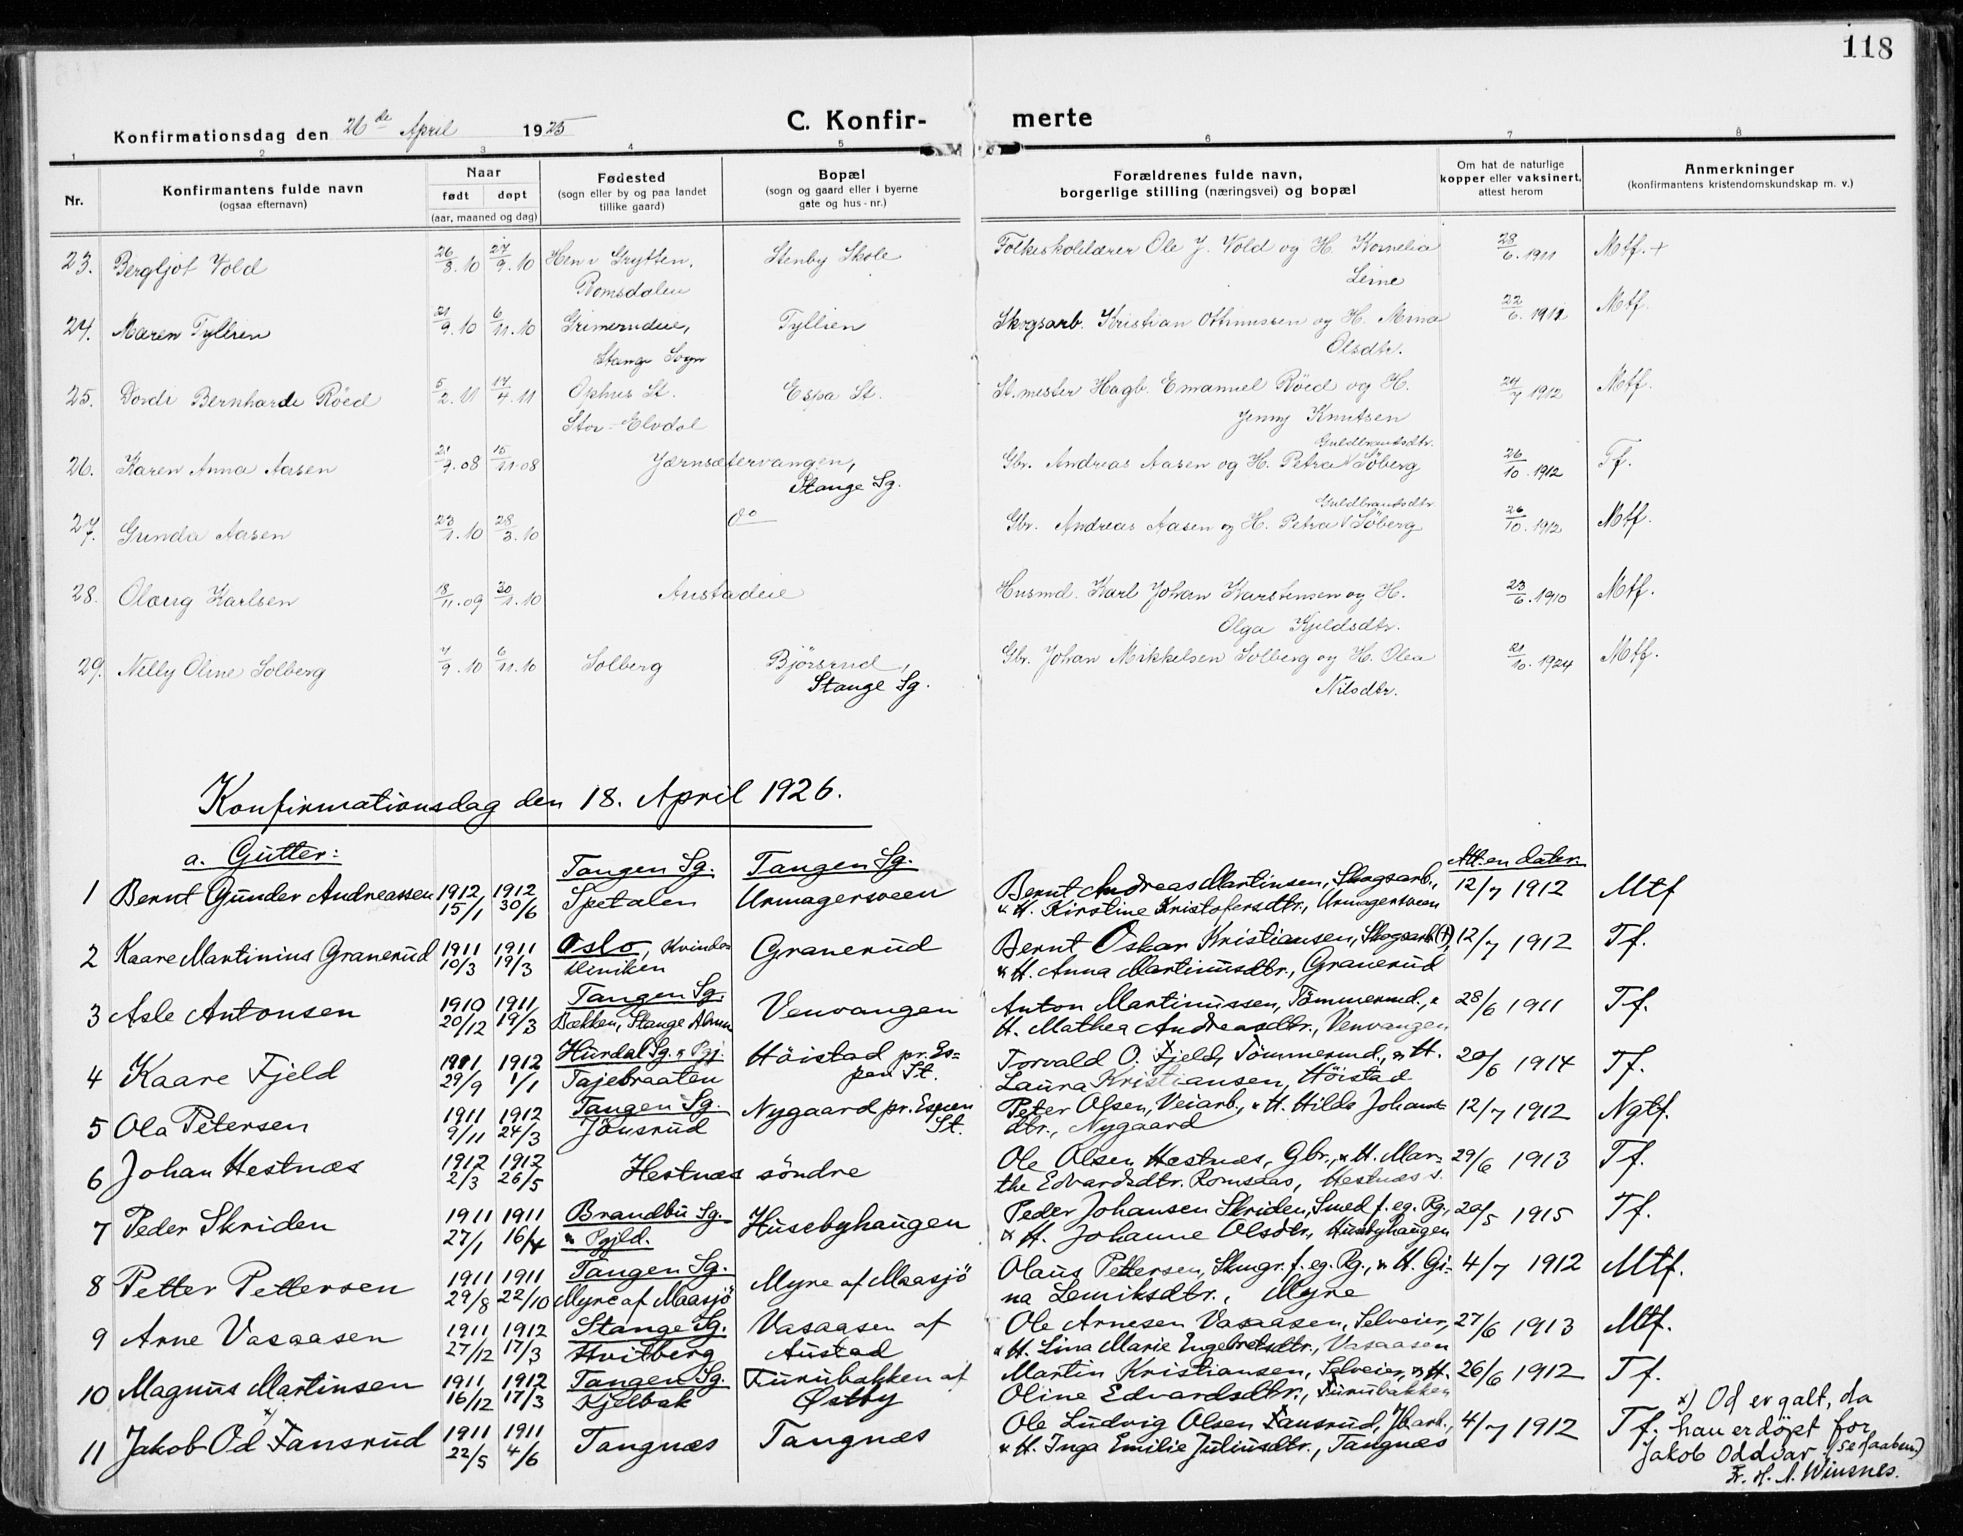 118
Konfirmationsdag den 26de April 1925 C. Konfir- merte
1 2 3 4 5 6 7 8
Nr. Konfirmantens fulde navn (ogsaa efternavn) Naar født døpt (aar, maaned og dag) Fødested (sogn eller by og paa landet tillike gaard) Bopæl (sogn og gaard eller i byerne gate og hus-nr.) Forældrenes fulde navn, borgerlige stilling (næringsvei) og bopæl Om hat de naturlige kopper eller vaksinert, attest herom Anmerkninger (konfirmantens kristendomskundskap m. v.)
23. Bergljot Vold 26/8.10 27/9.10 Hen i Grytten, Stenby Skole Folkeskolelærer Ole J. Vold og H. Kornelia 28/6.1911 Mtf. +
Romsdalen Leine
24. Maren Tyllien 21/9.10 6/11.10 Grimerudeie, Tyllien Skogsarb. Kristian Ottinussen og H. Mina 22/6.1911 Mtf.
Stange Sogn Olsdtr.
25. Dordi Bernharde Röed 5/2.11 17/4.11 Ophus St. Espa St. St.mester Hagb. Emanuel Röed og H. 24/7 1912 Mtf.
Stor-Elvdal Jenny Knutsen
Guldbrandsdtr.
26. Karen Anna Aasen 21/9.08 15/11.08 Jærnsætervangen, Gbr. Andreas Aasen og H. Petra V Söberg 26/10.1912 Tf.
Stange Sg.
Guldbrandsdtr
27. Gunda Aasen 23/1.10 28/3.10 do Gbr. Andreas Aasen og H. Petra V Söberg 26/10.1912 Mtf.
28. Olaug Karlsen 18/11.09 30/1.10 Austadeie Husmd. Karl Johan Karstensen og H. 23/6.1910 Mtf.
Olga Kjeldsdtr.
29. Nelly Oline Solberg 7/9.10 6/11.10 Solberg Björsrud, Gbr. Johan Mikkelsen Solberg og H. Olea 21/10.1924 Mtf.
Stange Sg. Nilsdtr.
Konfirmationsdag den 18. April 1926.
a. Gutter: Tangen Sg. Tangen Sg. Att. en dater.
1 Bernt Gunder Andreassen 1912 15/1 1912 30/6 Spetalen Urmagersveen Bernt Andreas Martinsen, Skogsarb., 12/7 1912 Mtf
& H. Kirstine Kristofersdtr., Urmagersveen
2 Kaare Martinius Granerud 1911 10/3 1911 19/3 Oslo, Kvinde- Granerud Bernt Oskar Kristiansen, Skogsarb(†), 12/7 1912 Tf.
kliniken & H. Anna Martinusdtr., Granerud
3 Asle Antonsen 1910 20/12 1911 19/3 Tangen Sg. Venvangen Anton Martinussen, Tömmermd., & 28/6 1911 Tf.
Bækken, Stange Almen H. Mathea Andreasdtr., Venvangen
4 Kaare Fjeld 1911 29/9 1912 1/1 Hurdal Sg. & Pgj. Höistad pr. Es- Torvald O. Fjeld, Tömmermd., & H. 20/6 1914 Tf.
Tajebraaten pen St. Laura Kristiansen, Höistad
5 Ola Petersen 1911 9/11 1912 24/3 Tangen Sg. Nygaard pr. Espen Peter Olsen, Veiarb., & H. Hilda Johans- 12/7 1912 Ngtf.
Jönsrud St. dtr., Nygaard
6 Johan Hestnæs 1912 2/3 1912 26/5 Hestnæs söndre Ole Olsen Hestnæs, Gbr., & H. Mar- 29/6 1913 Tf.
the Edvardsdtr. Romsaas, Hestnæs s.
7 Peder Skriden 1911 27/1 1911 16/4 Brandbu Sg. Husebyhaugen Peder Johansen Skriden, Smed f. eg. Rg., 20/5 1915 Tf.
& Pgjld. & H. Johanne Olsdtr., Husebyhaugen
8 Petter Pettersen 1911 29/8 1911 22/10 Tangen Sg. Myre af Maasjö Olaus Pettersen, Skmgr. f. eg. Rg., & H. Gi- 4/7 1912 Mtf.
Myre af Maasjö na Lemiksdtr., Myre
9 Arne Vasaasen 1911 27/12 1912 17/3 Stange Sg. Vasaasen af Ole Arnesen Vasaasen, Selveier, 27/6 1913 Mtf.
Hvitberg Austad & H. Lina Marie Engebretsdtr., Vasaasen
10 Magnus Martinsen 1911 16/12 1912 17/3 Tangen Sg. Furubakken af Martin Kristiansen, Selveier, & H. 26/6 1912 Tf.
Fjelbak Østby Oline Edvardsdtr., Furubakken
11 Jakob Od x) Fansrud 1911 22/5 1911 4/6 Tangnæs Tangnæs Ole Ludvig Olsen Fansrud, Jb.arb., 4/7 1912 Tf.
& H. Inga Emilie Juliusdtr., Tangnæs
x) Od er galt, da
han er döpt for
Jakob Oddvar
Fr. H. A. Winsnes.